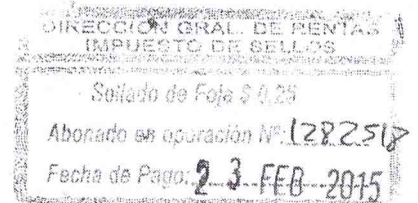 DIRECCIÓN GRAL. DE RENTAS
IMPUESTO DE SELLOS
Sellado de Foja $ 0,25
Abonado en operación Nº 1282518
Fecha de Pago: 23 FEB 2015